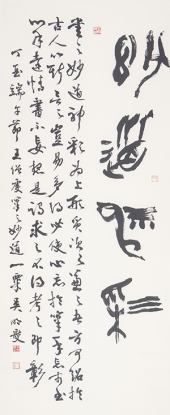 妙道神彩
書之妙道神彩為上形質次之兼之者方可紹於
古人以斯言之豈易多得必使心忘於筆手忘於書
心手達情書不妄想是謂求之不得考之即彰
丁亥端午節王僧虔筆之妙道一粟吳